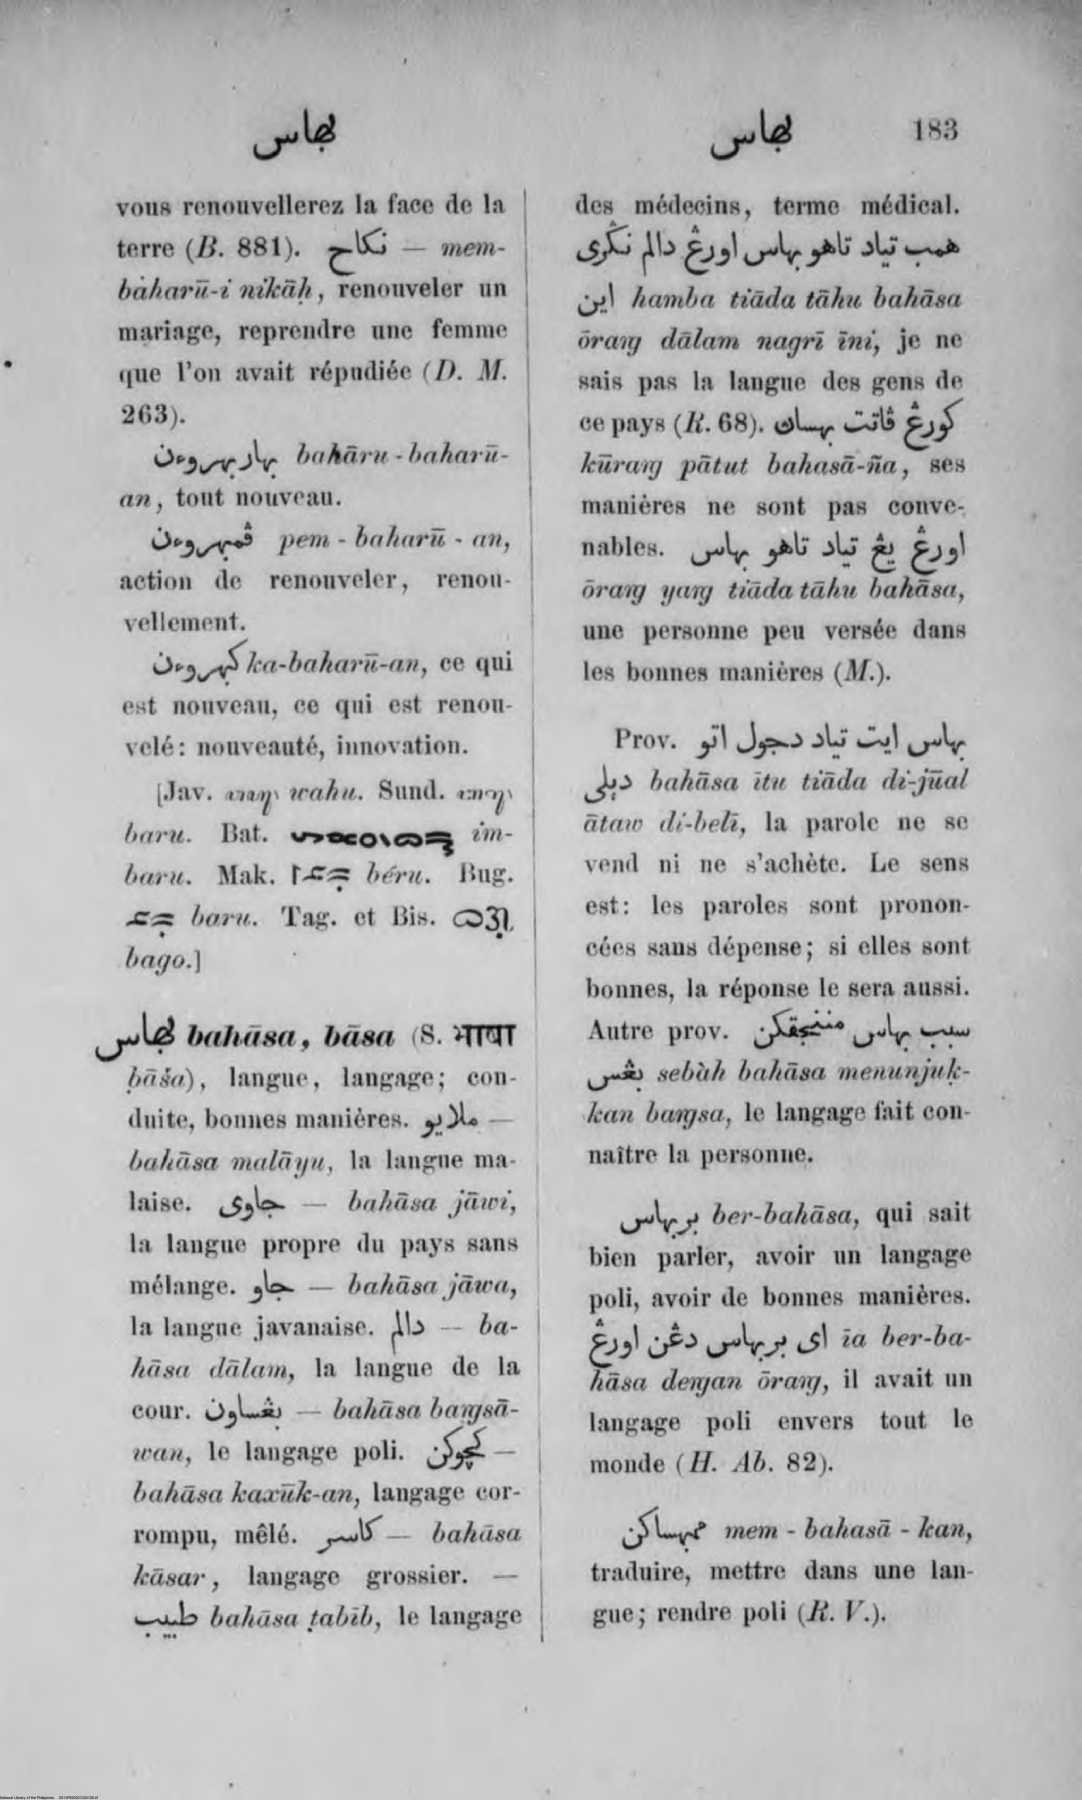 بهاس
بهاس 183
vous renouvellerez la face de la
terre (B. 881). نكاح — mem-
baharū-i nikāḥ, renouveler un
mariage, reprendre une femme
que l'on avait répudiée (D. M.
263).
بهار بهروءن bahāru-baharū-
an, tout nouveau.
ڤمبهروءن pem-baharū-an,
action de renouveler, renou-
vellement.
كبهروءن ka-baharū-an, ce qui
est nouveau, ce qui est renou-
velé: nouveauté, innovation.
[Jav. wahu. Sund.
baru. Bat. im-
baru. Mak. béru. Bug.
baru. Tag. et Bis.
bago.]
بهاس bahāsa, bāsa (S. भाषा
b̤āṡa), langue, langage; con-
duite, bonnes manières. ملايو —
bahāsa malāyu, la langue ma-
laise. جاوى — bahāsa jāwi,
la langue propre du pays sans
mélange. جاو — bahāsa jāwa,
la langue javanaise. دالم — ba-
hāsa dālam, la langue de la
cour. بڠساون — bahāsa baŋsā-
wan, le langage poli. كچوكن —
bahāsa kaxūk-an, langage cor-
rompu, mêlé. كاسر — bahāsa
kāsar, langage grossier. —
طبيب bahāsa ṭabīb, le langage
des médecins, terme médical.
همب تياد تاهو بهاس اورڠ دالم نݢري
اين hamba tiāda tāhu bahāsa
ōraŋ dālam nagrī īni, je ne
sais pas la langue des gens de
ce pays (R. 68). كورڠ ڤاتت بهساڽ
kūraŋ pātut bahasā-ña, ses
manières ne sont pas conve-
nables. اورڠ يڠ تياد تاهو بهاس
ōraŋ yaŋ tiāda tāhu bahāsa,
une personne peu versée dans
les bonnes manières (M.).
Prov. بهاس ايت تياد دجول اتو
دبلي bahāsa ītu tiāda di-jūal
ātaw di-belī, la parole ne se
vend ni ne s'achète. Le sens
est: les paroles sont pronon-
cées sans dépense; si elles sont
bonnes, la réponse le sera aussi.
Autre prov. سبب بهاس مننجقكن
بڠس sebàb bahāsa menunjuḳ-
kan baŋsa, le langage fait con-
naître la personne.
بربهاس ber-bahāsa, qui sait
bien parler, avoir un langage
poli, avoir de bonnes manières.
اى بربهاس دڠن اورڠ īa ber-ba-
hāsa deŋan ōraŋ, il avait un
langage poli envers tout le
monde (H. Ab. 82).
ممبهساكن mem-bahasā-kan,
traduire, mettre dans une lan-
gue; rendre poli (R. V.).